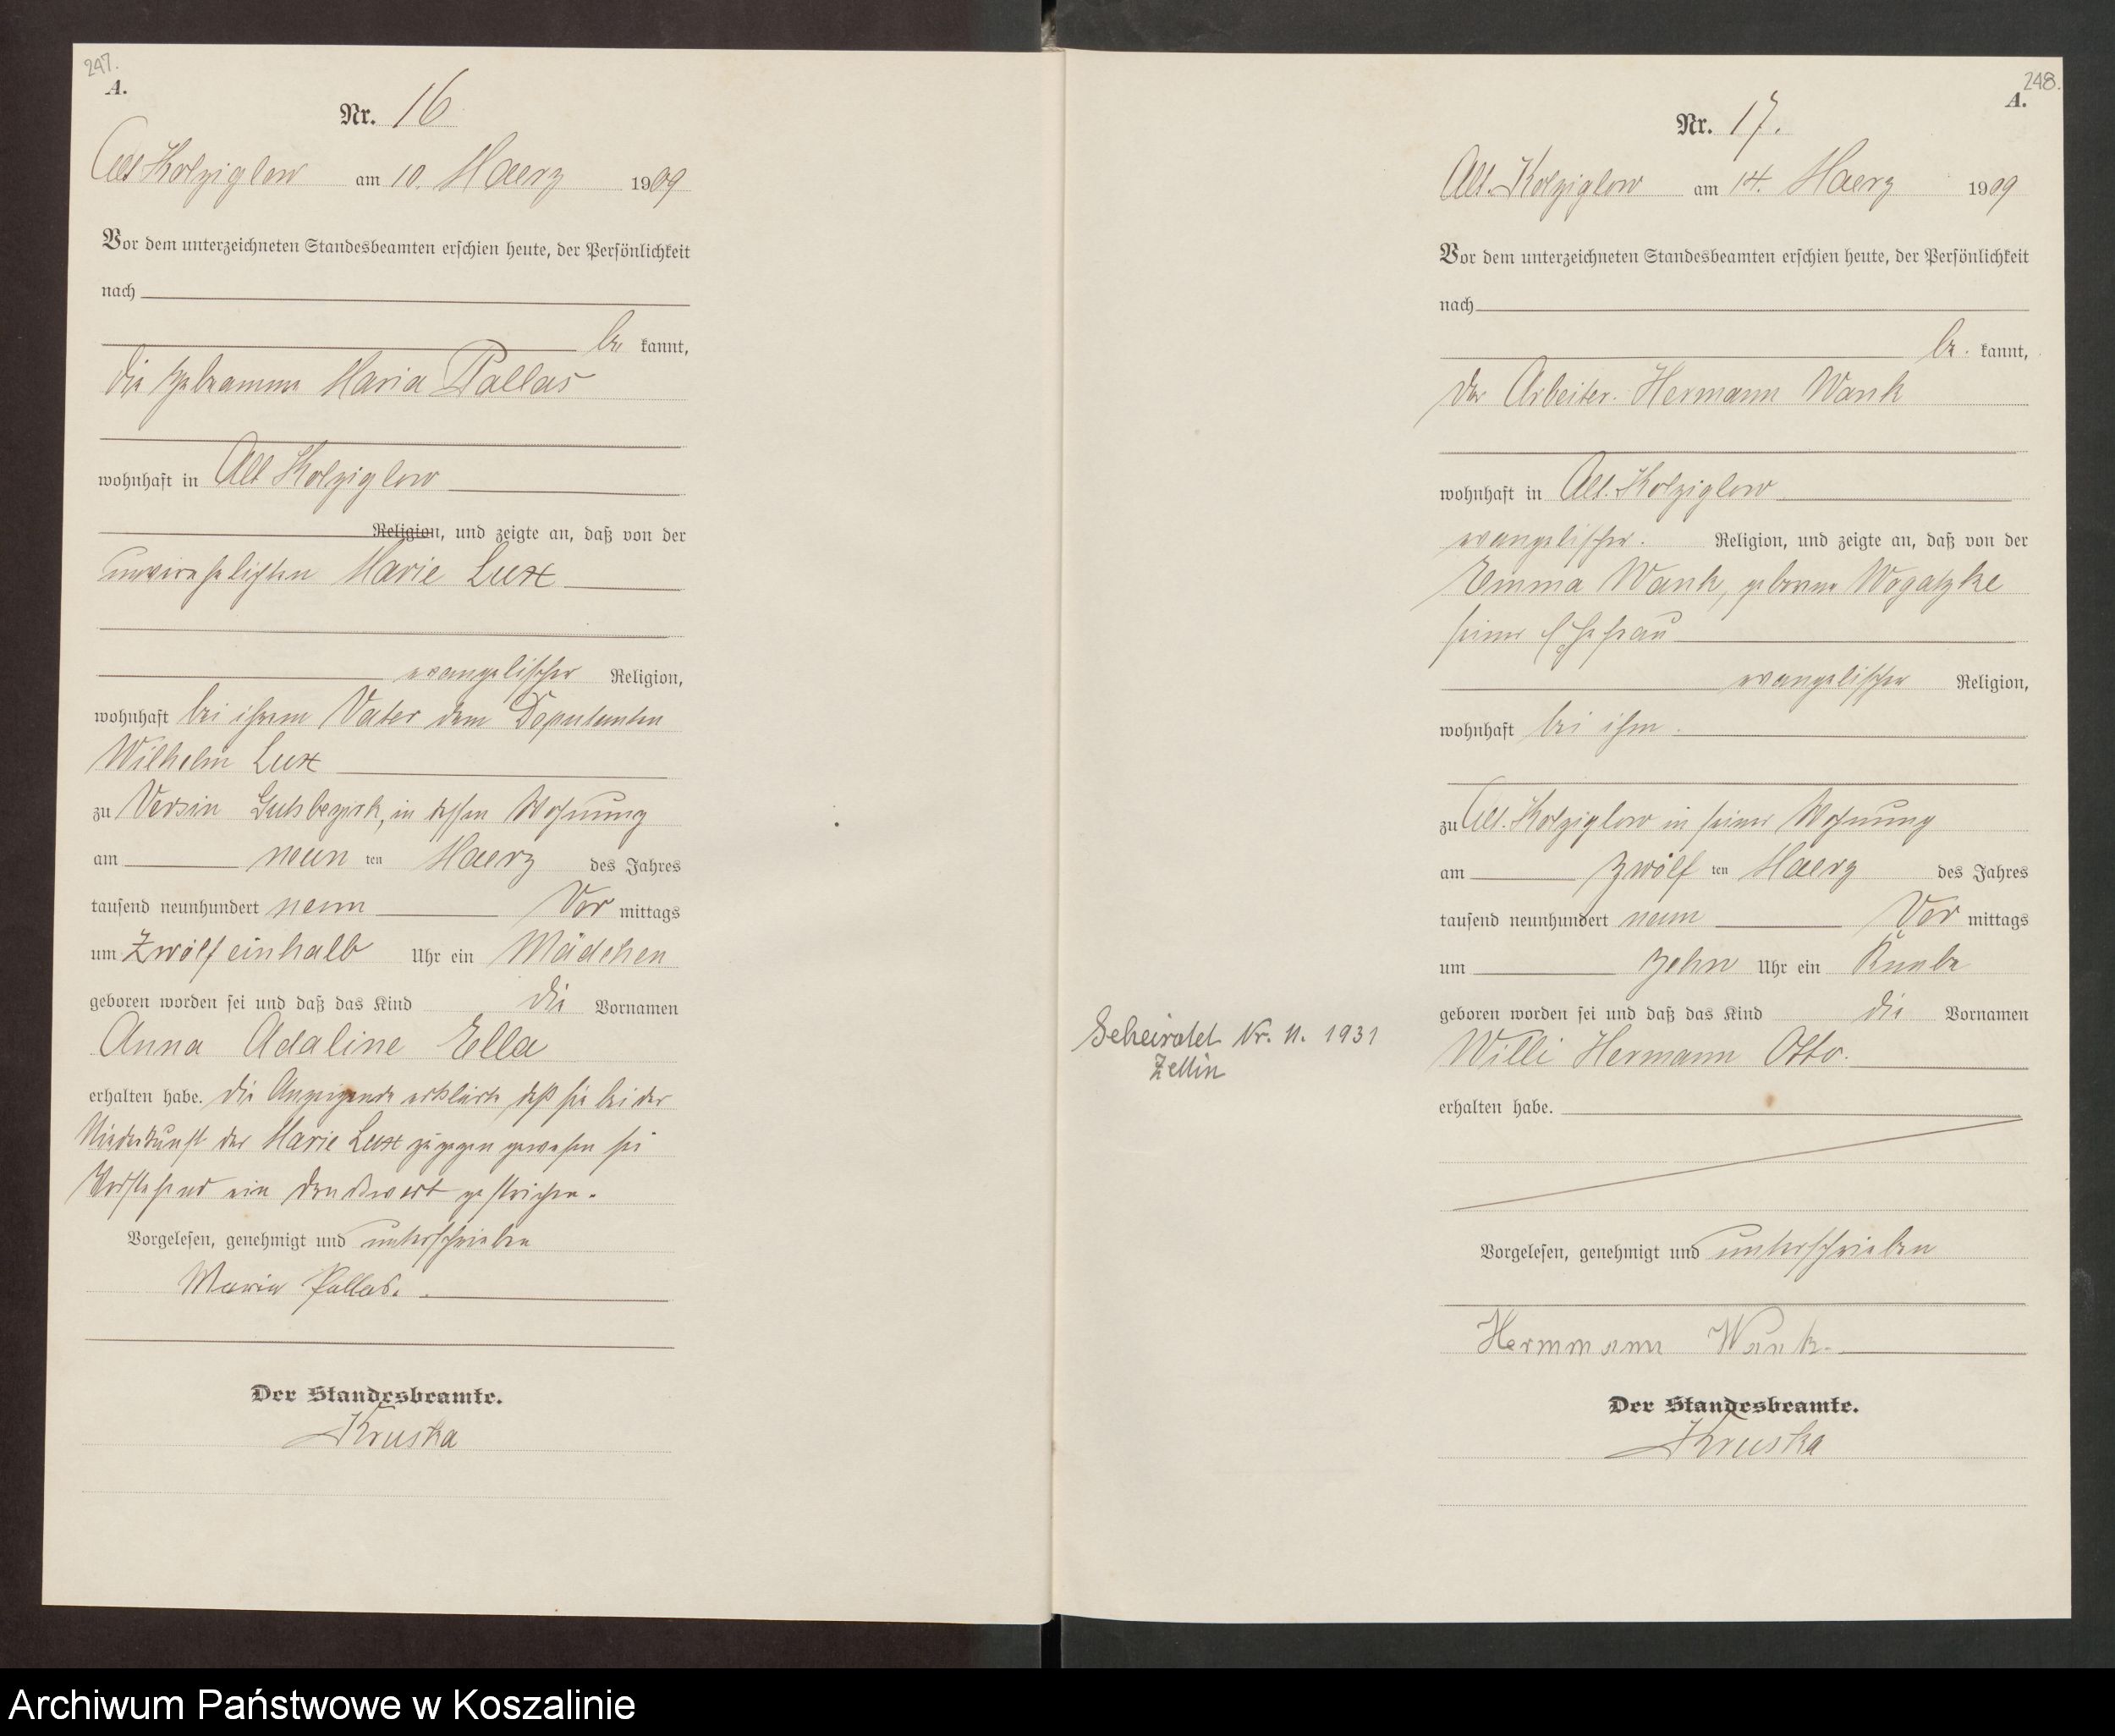 247.
A.
Nr. 16
Alt Kolziglow am 10. Maerz 1909
Vor dem unterzeichneten Standesbeamten erschien heute, der Persönlichkeit
nach
be kannt,
die Hebeamme Maria Pallas
wohnhaft in Alt Kolziglow
Religion, und zeigte an, daß von der
unverehelichten Marie Lux
evangelischer Religion,
wohnhaft bei ihrem Vater dem Deputanten
Wilhelm Lux
zu Versin Gutsbezirk, in dessen Wohnung
am neun ten Maerz des Jahres
tausend neunhundert neun Vor mittags
um Zwölf einhalb Uhr ein Mädchen
geboren worden sei und daß das Kind die Vornamen
Anna Adaline Ella
erhalten habe. Die Anzeigende erklärte daß sie bei der
Niederkunft der Marie Lux zugegen gewesen sei
Vorstehend ein Druckwort gestrichen.
Vorgelesen, genehmigt und unterschrieben
Maria Pallas.
Der Standesbeamte.
Kruska
248.
A.
Nr. 17.
Alt. Kolziglow am 14. Maerz 1909
Vor dem unterzeichneten Standesbeamten erschien heute, der Persönlichkeit
nach
be. kannt,
der Arbeiter. Hermann Wank
wohnhaft in Alt. Kolziglow
evangelischer. Religion, und zeigte an, daß von der
Emma Wank, geborene Wogatzke
seiner Ehefrau
evangelischer Religion,
wohnhaft bei ihm.
zu Alt. Kolziglow in seiner Wohnung
am zwölf ten Maerz des Jahres
tausend neunhundert neun Vor mittags
um zehn Uhr ein Knabe
geboren worden sei und daß das Kind die Vornamen
Willi Hermann Otto.
erhalten habe.
Vorgelesen, genehmigt und unterschrieben
Hermmann Wank.
Der Standesbeamte.
Kruska
Geheiratet Nr. 11. 1931
Zettin
Archiwum Państwowe w Koszalinie